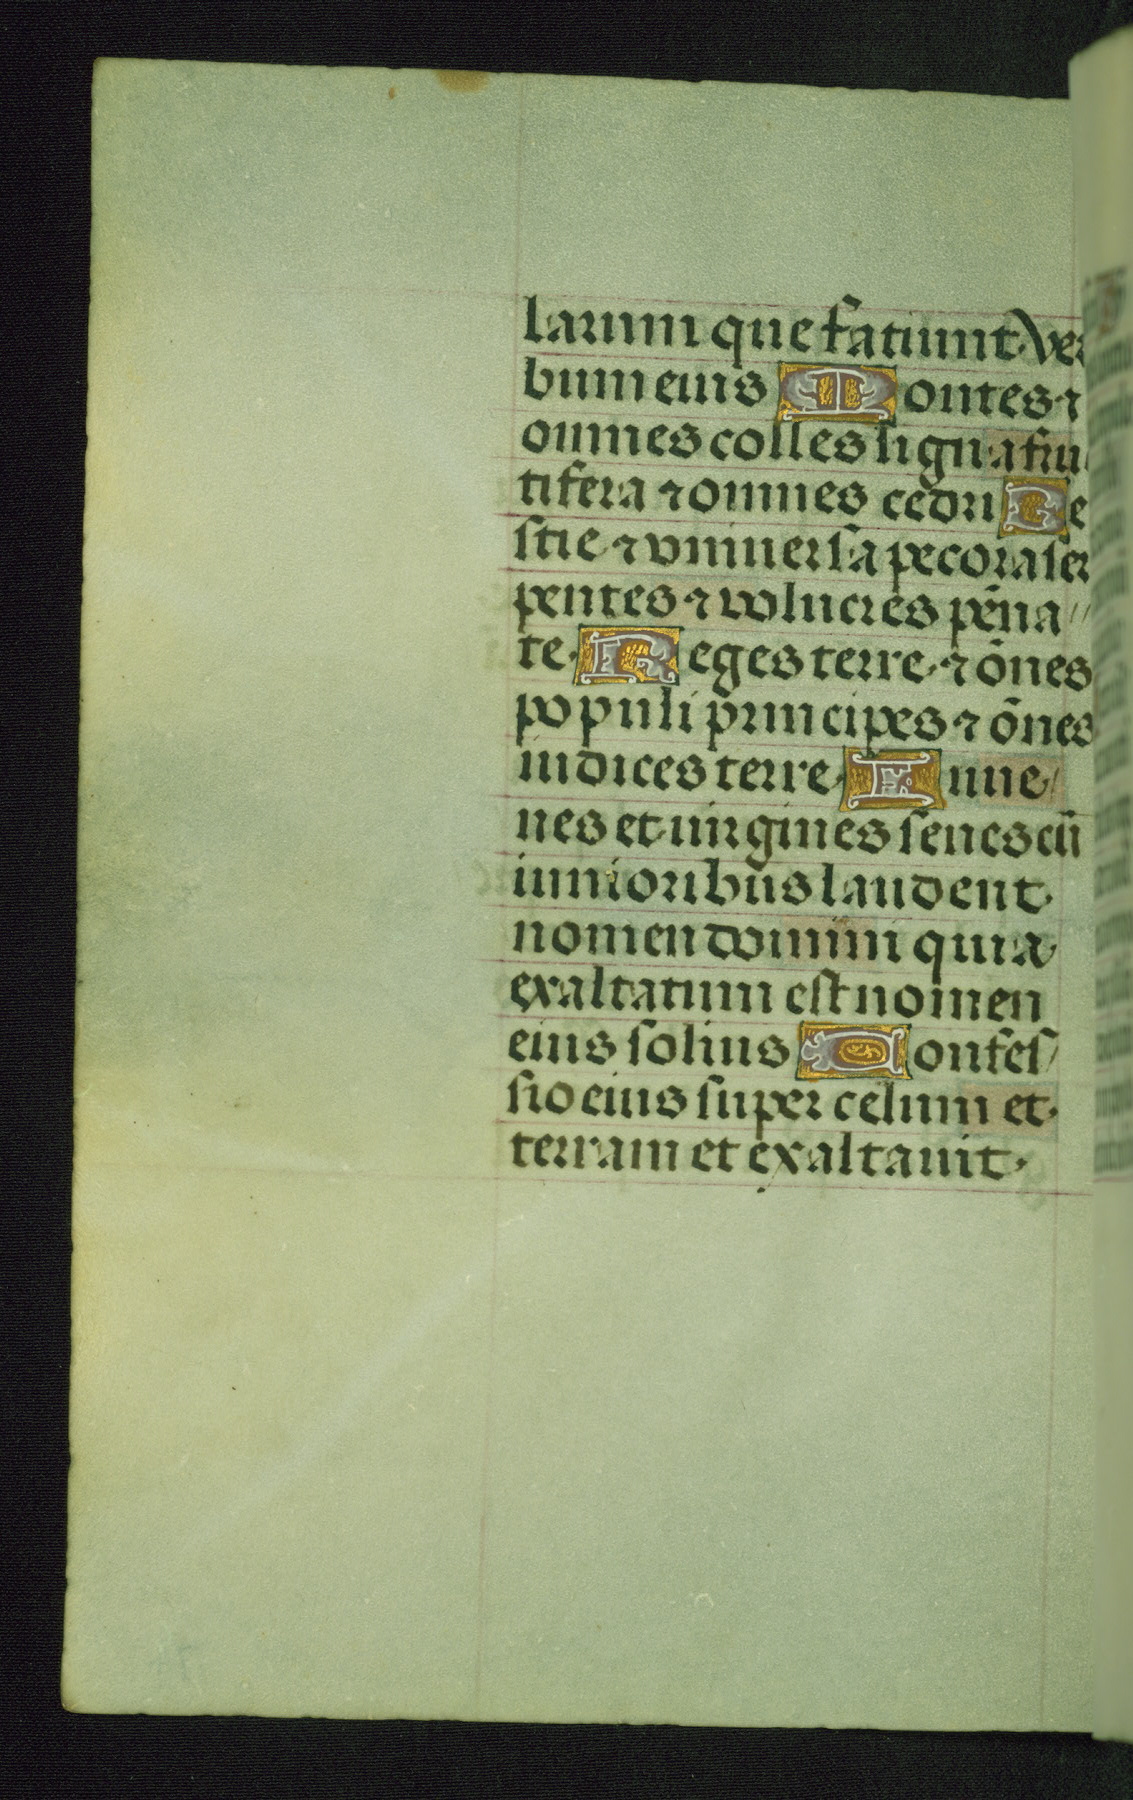 larum que fatiunt. ver
bum eius Montes ⁊
omnes colles ligna fru
tifera ⁊ omnes cedri Be
stie ⁊ vniuersa pecora ser
pentes ⁊ volucres pēna//
te. Reges terre. ⁊ ōnes
populi principes ⁊ ōnes
iudices terre. Iuue/
nes et uirgines senes cū
iunioribus laudent.
nomen domini quia
exaltatum est nomen
eius solius Confes/
sio eius super celum et.
terram et exaltauit.